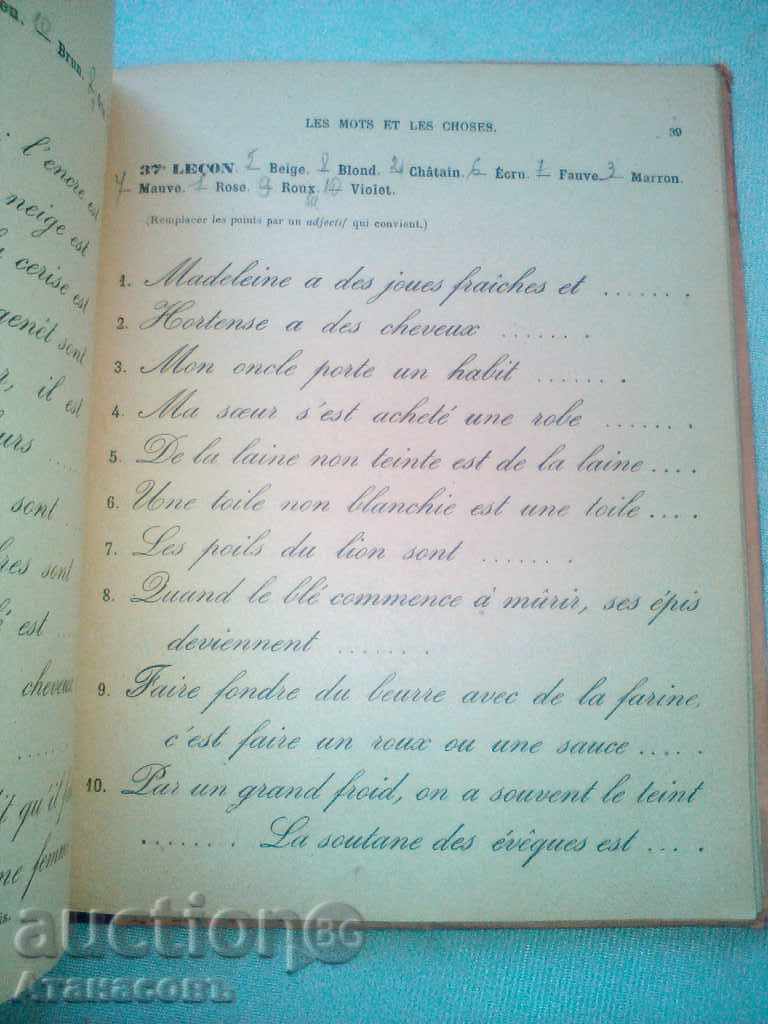 ou. 10
Brun. 2
l'encre est
neige est
cerise est
genêt sont
, il est
urs ......
sont ...
res sont
é est ....
cheveux
......
it qu'il f
ne femm
LES MOTS ET LES CHOSES. 39
37e LEÇON. 5 Beige. 8 Blond. 2 Châtain. 6 Écru. 7 Fauve. 3 Marron.
4 Mauve. 1 Rose. 9 Roux. 10 Violet.
(Remplacer les points par un adjectif qui convient.)
1. Madeleine a des joues fraîches et .......
2. Hortense a des cheveux .......
3. Mon oncle porte un habit .......
4. Ma sœur s'est acheté une robe .......
5. De la laine non teinte est de la laine ....
6. Une toile non blanchie est une toile ....
7. Les poils du lion sont .......
8. Quand le blé commence à mûrir, ses épis
deviennent .......
9. Faire fondre du beurre avec de la farine,
c'est faire un roux ou une sauce .....
10. Par un grand froid, on a souvent le teint
....... La soutane des évêques est ....
auction BG
Атанасовъ